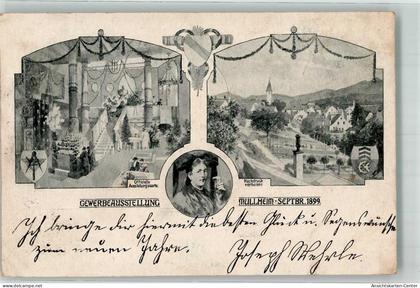 Offizielle
Ausstellungskarte.
Nachdruck
verboten
GEWERBEAUSSTELLUNG
MÜLLHEIM · SEPTBR. 1899.
Ich bringe dir hiermit die besten Glück u. Segenswünsche
zum neuen Jahre.
Joseph Wehrle.
Ansichtskarten-Center